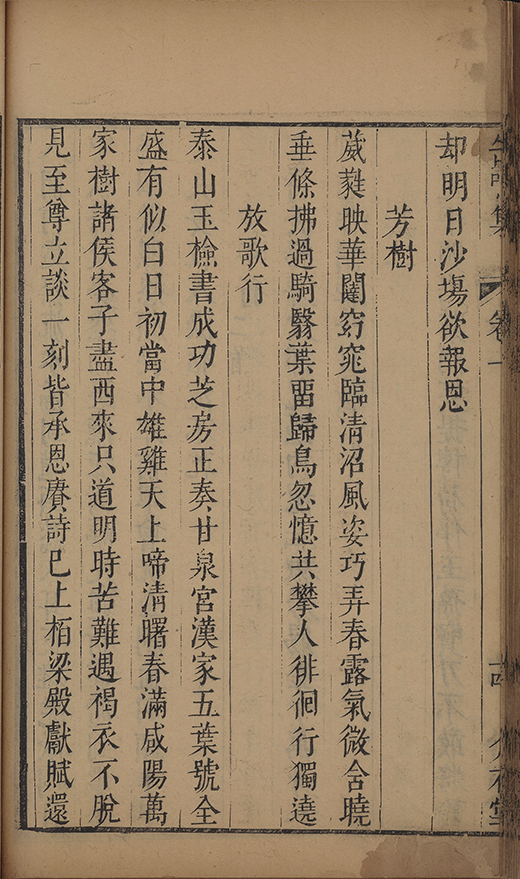 却明日沙塲欲報恩
芳樹
葳蕤映華闥窈窕臨清沼風姿巧弄春露氣微含曉
垂條拂過騎翳葉畱歸鳥忽憶共攀人徘徊行獨遶
放歌行
泰山玉檢書成功芝房正奏甘泉宮漢家五葉號全
盛有似白日初當中雄雞天上啼清曙春滿咸陽萬
家樹諸侯客子盡西來只道明時苦難遇褐衣不脫
見至尊立談一刻皆承恩賡詩已上栢梁殿獻賦還